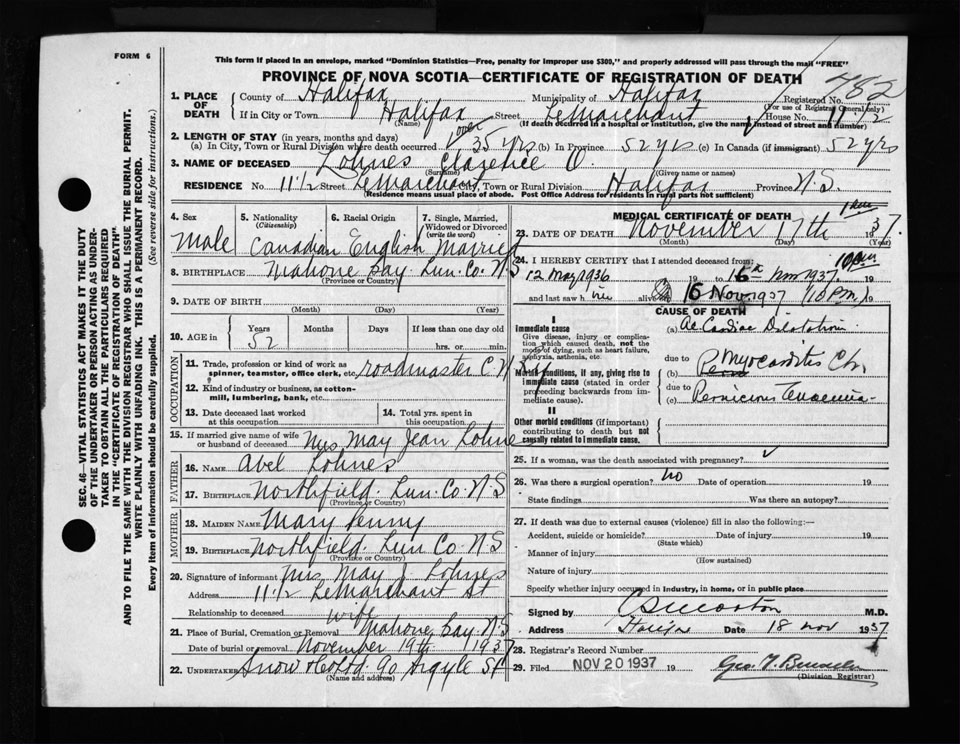 FORM 6
This form if placed in an envelope, marked "Dominion Statistics—Free, penalty for improper use $300," and properly addressed will pass through the mail "FREE"
PROVINCE OF NOVA SCOTIA—CERTIFICATE OF REGISTRATION OF DEATH
782
1. PLACE OF DEATH
County of Halifax Municipality of Halifax Registered No.
(For use of Registrar General only)
If in City or Town Halifax Street LeMarchant House No. 11 1/2
(Name) (If death occurred in a hospital or institution, give the name instead of street and number)
2. LENGTH OF STAY (in years, months and days)
(a) In City, Town or Rural Division where death occurred over 35 yrs (b) In Province 52 yrs (c) In Canada (if immigrant) 52 yrs
3. NAME OF DECEASED Lohnes Clarence O.
(Surname) (Given name or names)
RESIDENCE No. 11 1/2 Street LeMarchant City, Town or Rural Division Halifax Province N.S.
(Residence means usual place of abode. Post Office Address for residents in rural parts not sufficient)
4. Sex Male
5. Nationality (Citizenship) Canadian
6. Racial Origin English
7. Single, Married, Widowed or Divorced (write the word) Married
8. BIRTHPLACE Mahone Bay Lun. Co. N.S
(Province or Country)
9. DATE OF BIRTH
(Month) (Day) (Year)
10. AGE in Years 52 Months Days If less than one day old
hrs. or min.
OCCUPATION
11. Trade, profession or kind of work as spinner, teamster, office clerk, etc. roadmaster C.N.Ry
12. Kind of industry or business, as cotton-mill, lumbering, bank, etc.
13. Date deceased last worked at this occupation
14. Total yrs. spent in this occupation
15. If married give name of wife or husband of deceased Mrs May Jean Lohnes
FATHER
16. NAME Abel Lohnes
17. BIRTHPLACE Northfield Lun. Co. N S
(Province or Country)
MOTHER
18. MAIDEN NAME Mary Penny
19. BIRTHPLACE Northfield Lun Co. N S
(Province or Country)
20. Signature of informant Mrs May J. Lohnes
Address 11 1/2 LeMarchant St
Relationship to deceased wife
21. Place of Burial, Cremation or Removal Mahone Bay N.S
Date of burial or removal November 19th 1937
22. UNDERTAKER Snow & Co Ltd. 90 Argyle St
(Name and address)
MEDICAL CERTIFICATE OF DEATH
23. DATE OF DEATH November 17th 1937.
(Month) (Day) (Year)
24. I HEREBY CERTIFY that I attended deceased from:
12 May 1936 19 to 16th Nov 1937
and last saw h im alive on 16 Nov 1937 (10 pm) 19
CAUSE OF DEATH
I
Immediate cause
Give disease, injury or complication which caused death, not the mode of dying, such as heart failure, asphyxia, asthenia, etc.
(a) Ac Cardiac Dilatation
due to
Morbid conditions, if any, giving rise to immediate cause (stated in order proceeding backwards from immediate cause).
(b) Myocarditis Chr
due to
(c) Pernicious
II
Other morbid conditions (if important) contributing to death but not causally related to immediate cause.
25. If a woman, was the death associated with pregnancy?
26. Was there a surgical operation? no Date of operation 19
State findings Was there an autopsy?
27. If death was due to external causes (violence) fill in also the following:—
Accident, suicide or homicide? Date of injury 19
(State which)
Manner of injury
(How sustained)
Nature of injury
Specify whether injury occurred in industry, in home, or in public place
Signed by M.D.
Address Halifax Date 18 Nov 1937
28. Registrar's Record Number
29. Filed NOV 20 1937 19
(Division Registrar)
SEC. 46—VITAL STATISTICS ACT MAKES IT THE DUTY
OF THE UNDERTAKER OR PERSON ACTING AS UNDER-
TAKER TO OBTAIN ALL THE PARTICULARS REQUIRED
IN THE "CERTIFICATE OF REGISTRATION OF DEATH"
AND TO FILE THE SAME WITH THE DIVISION REGISTRAR WHO SHALL ISSUE THE BURIAL PERMIT.
WRITE PLAINLY WITH UNFADING INK. THIS IS A PERMANENT RECORD.
Every item of information should be carefully supplied. (See reverse side for instructions.)